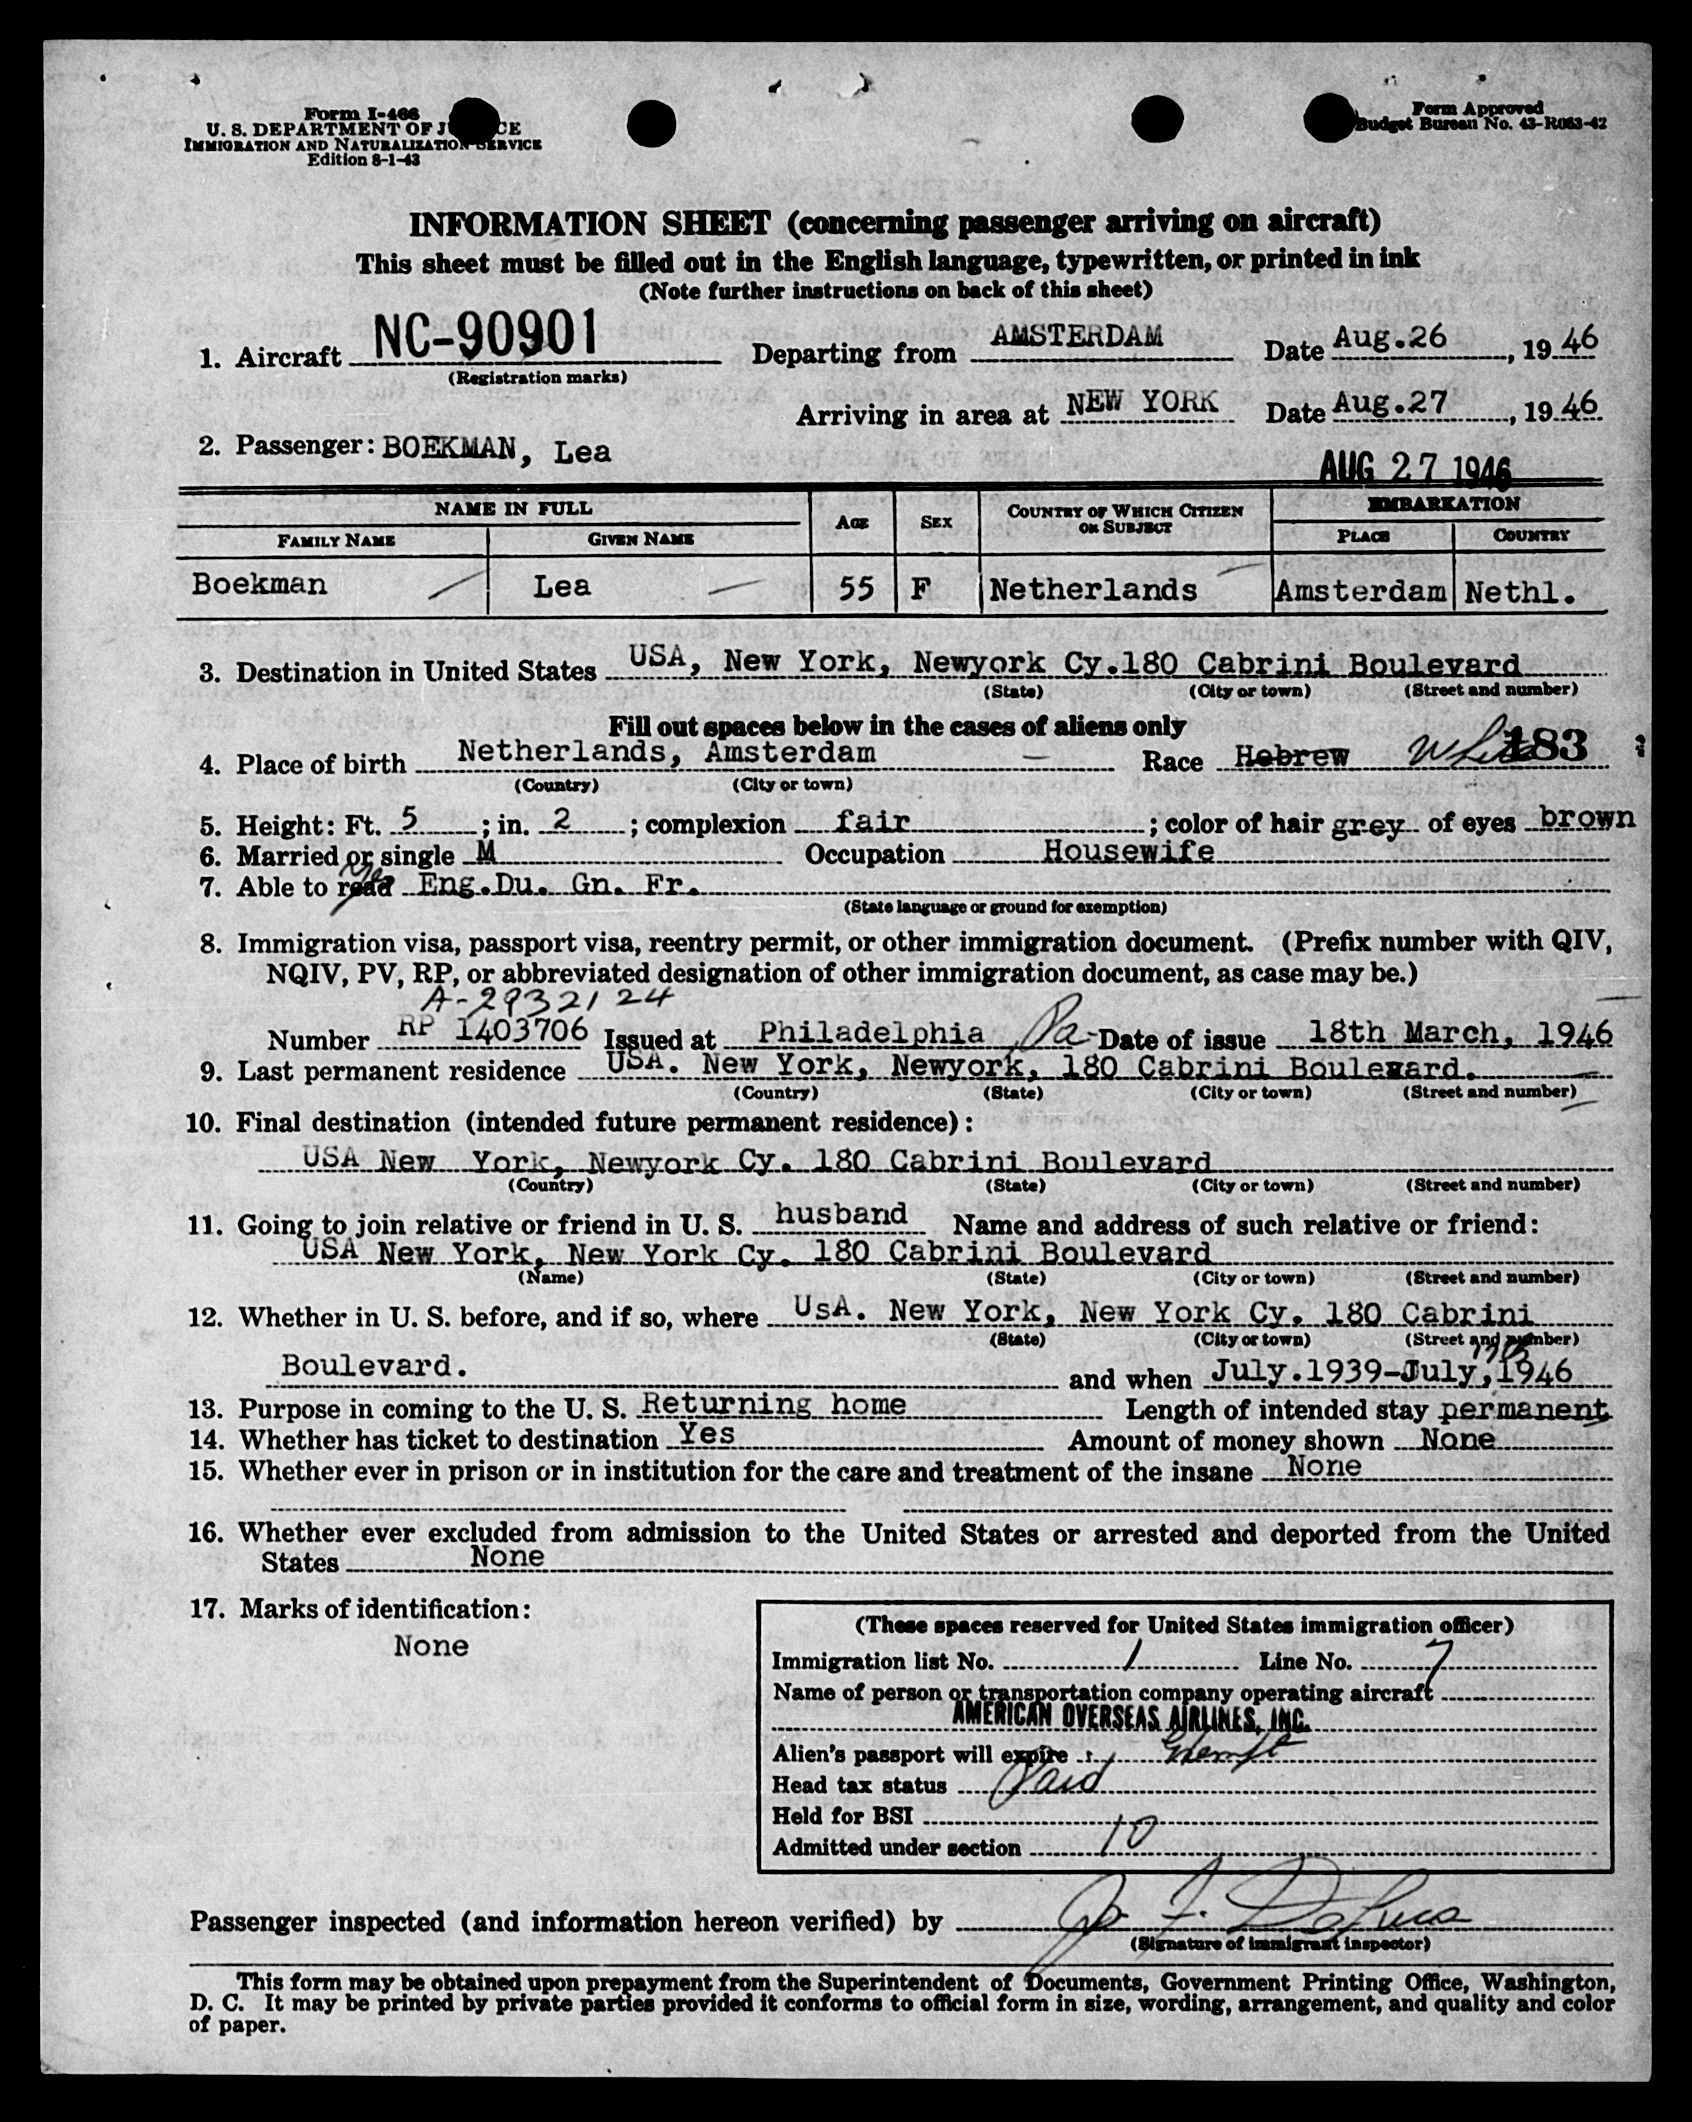 Form I-466
U. S. DEPARTMENT OF J CE
IMMIGRATION AND NATURALIZATION SERVICE
Edition 8-1-43
Form Approved
Budget Bureau No. 43-R063-42
INFORMATION SHEET (concerning passenger arriving on aircraft)
This sheet must be filled out in the English language, typewritten, or printed in ink
(Note further instructions on back of this sheet)
1. Aircraft NC-90901 Departing from AMSTERDAM Date Aug.26, 1946
(Registration marks)
Arriving in area at NEW YORK Date Aug.27, 1946.
2. Passenger: BOEKMAN, Lea
AUG 27 1946
NAME IN FULL AGE SEX COUNTRY OF WHICH CITIZEN OR SUBJECT EMBARKATION
FAMILY NAME GIVEN NAME PLACE COUNTRY
Boekman Lea 55 F Netherlands Amsterdam Nethl.
3. Destination in United States USA, New York, Newyork Cy.180 Cabrini Boulevard
(State) (City or town) (Street and number)
Fill out spaces below in the cases of aliens only
4. Place of birth Netherlands, Amsterdam Race Hebrew White 183
(Country) (City or town)
5. Height: Ft. 5; in. 2; complexion fair; color of hair grey of eyes brown
6. Married or single M Occupation Housewife
7. Able to read yes Eng.Du. Gn. Fr.
(State language or ground for exemption)
8. Immigration visa, passport visa, reentry permit, or other immigration document. (Prefix number with QIV,
NQIV, PV, RP, or abbreviated designation of other immigration document, as case may be.)
A-2932124
Number RP 1403706 Issued at Philadelphia Pa Date of issue 18th March, 1946
9. Last permanent residence USA. New York, Newyork, 180 Cabrini Boulevard.
(Country) (State) (City or town) (Street and number)
10. Final destination (intended future permanent residence):
USA New York, Newyork Cy. 180 Cabrini Boulevard
(Country) (State) (City or town) (Street and number)
11. Going to join relative or friend in U. S. husband Name and address of such relative or friend:
USA New York, New York Cy. 180 Cabrini Boulevard
(Name) (State) (City or town) (Street and number)
12. Whether in U. S. before, and if so, where UsA. New York, New York Cy. 180 Cabrini
(State) (City or town) (Street and number)
Boulevard. and when July.1939-July, 1946
13. Purpose in coming to the U. S. Returning home Length of intended stay permanent
14. Whether has ticket to destination Yes Amount of money shown None
15. Whether ever in prison or in institution for the care and treatment of the insane None
16. Whether ever excluded from admission to the United States or arrested and deported from the United
States None
17. Marks of identification:
None
(These spaces reserved for United States immigration officer)
Immigration list No. 1 Line No. 7
Name of person or transportation company operating aircraft
AMERICAN OVERSEAS AIRLINES, INC.
Alien's passport will expire Exempt
Head tax status Paid
Held for BSI
Admitted under section 10
Passenger inspected (and information hereon verified) by
(Signature of immigrant inspector)
This form may be obtained upon prepayment from the Superintendent of Documents, Government Printing Office, Washington,
D. C. It may be printed by private parties provided it conforms to official form in size, wording, arrangement, and quality and color
of paper.